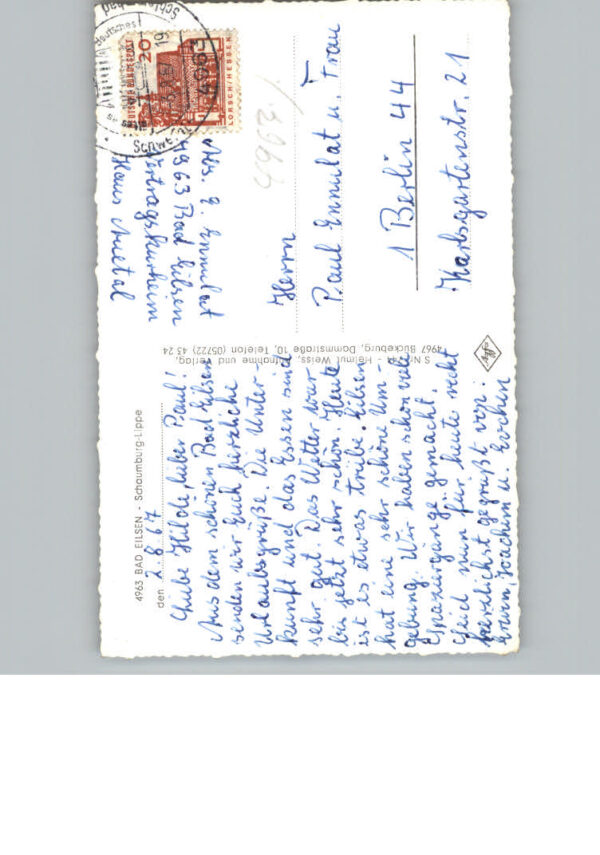 4963 BAD EILSEN - Schaumburg-Lippe
den 2.8.67
Liebe Hilde, lieber Paul!
Aus dem schönen Bad Eilsen
senden wir Euch herzliche
Urlaubsgrüße. Die Unter-
kunft und das Essen sind
sehr gut. Das Wetter war
bis jetzt sehr schön. Heute
ist es etwas trübe. Eilsen
hat eine sehr schöne Um-
gebung. Wir haben schon viele
Spaziergänge gemacht.
Seid nun für heute recht
herzlichst gegrüßt von
Joachim u. Evchen
S Nr.
Helmut Weiss, Aufnahme und Verlag,
4967 Bückeburg, Dammstraße 10, Telefon (05722) 43 24
Abs. E. Ennulat
4963 Bad Eilsen
Vertragskurheim
Haus Mietal
DEUTSCHE BUNDESPOST
20
LORSCH/HESSEN
4963
4963
Herrn
Paul Ennulat u. Frau
1 Berlin 44
Karlsgartenstr. 21